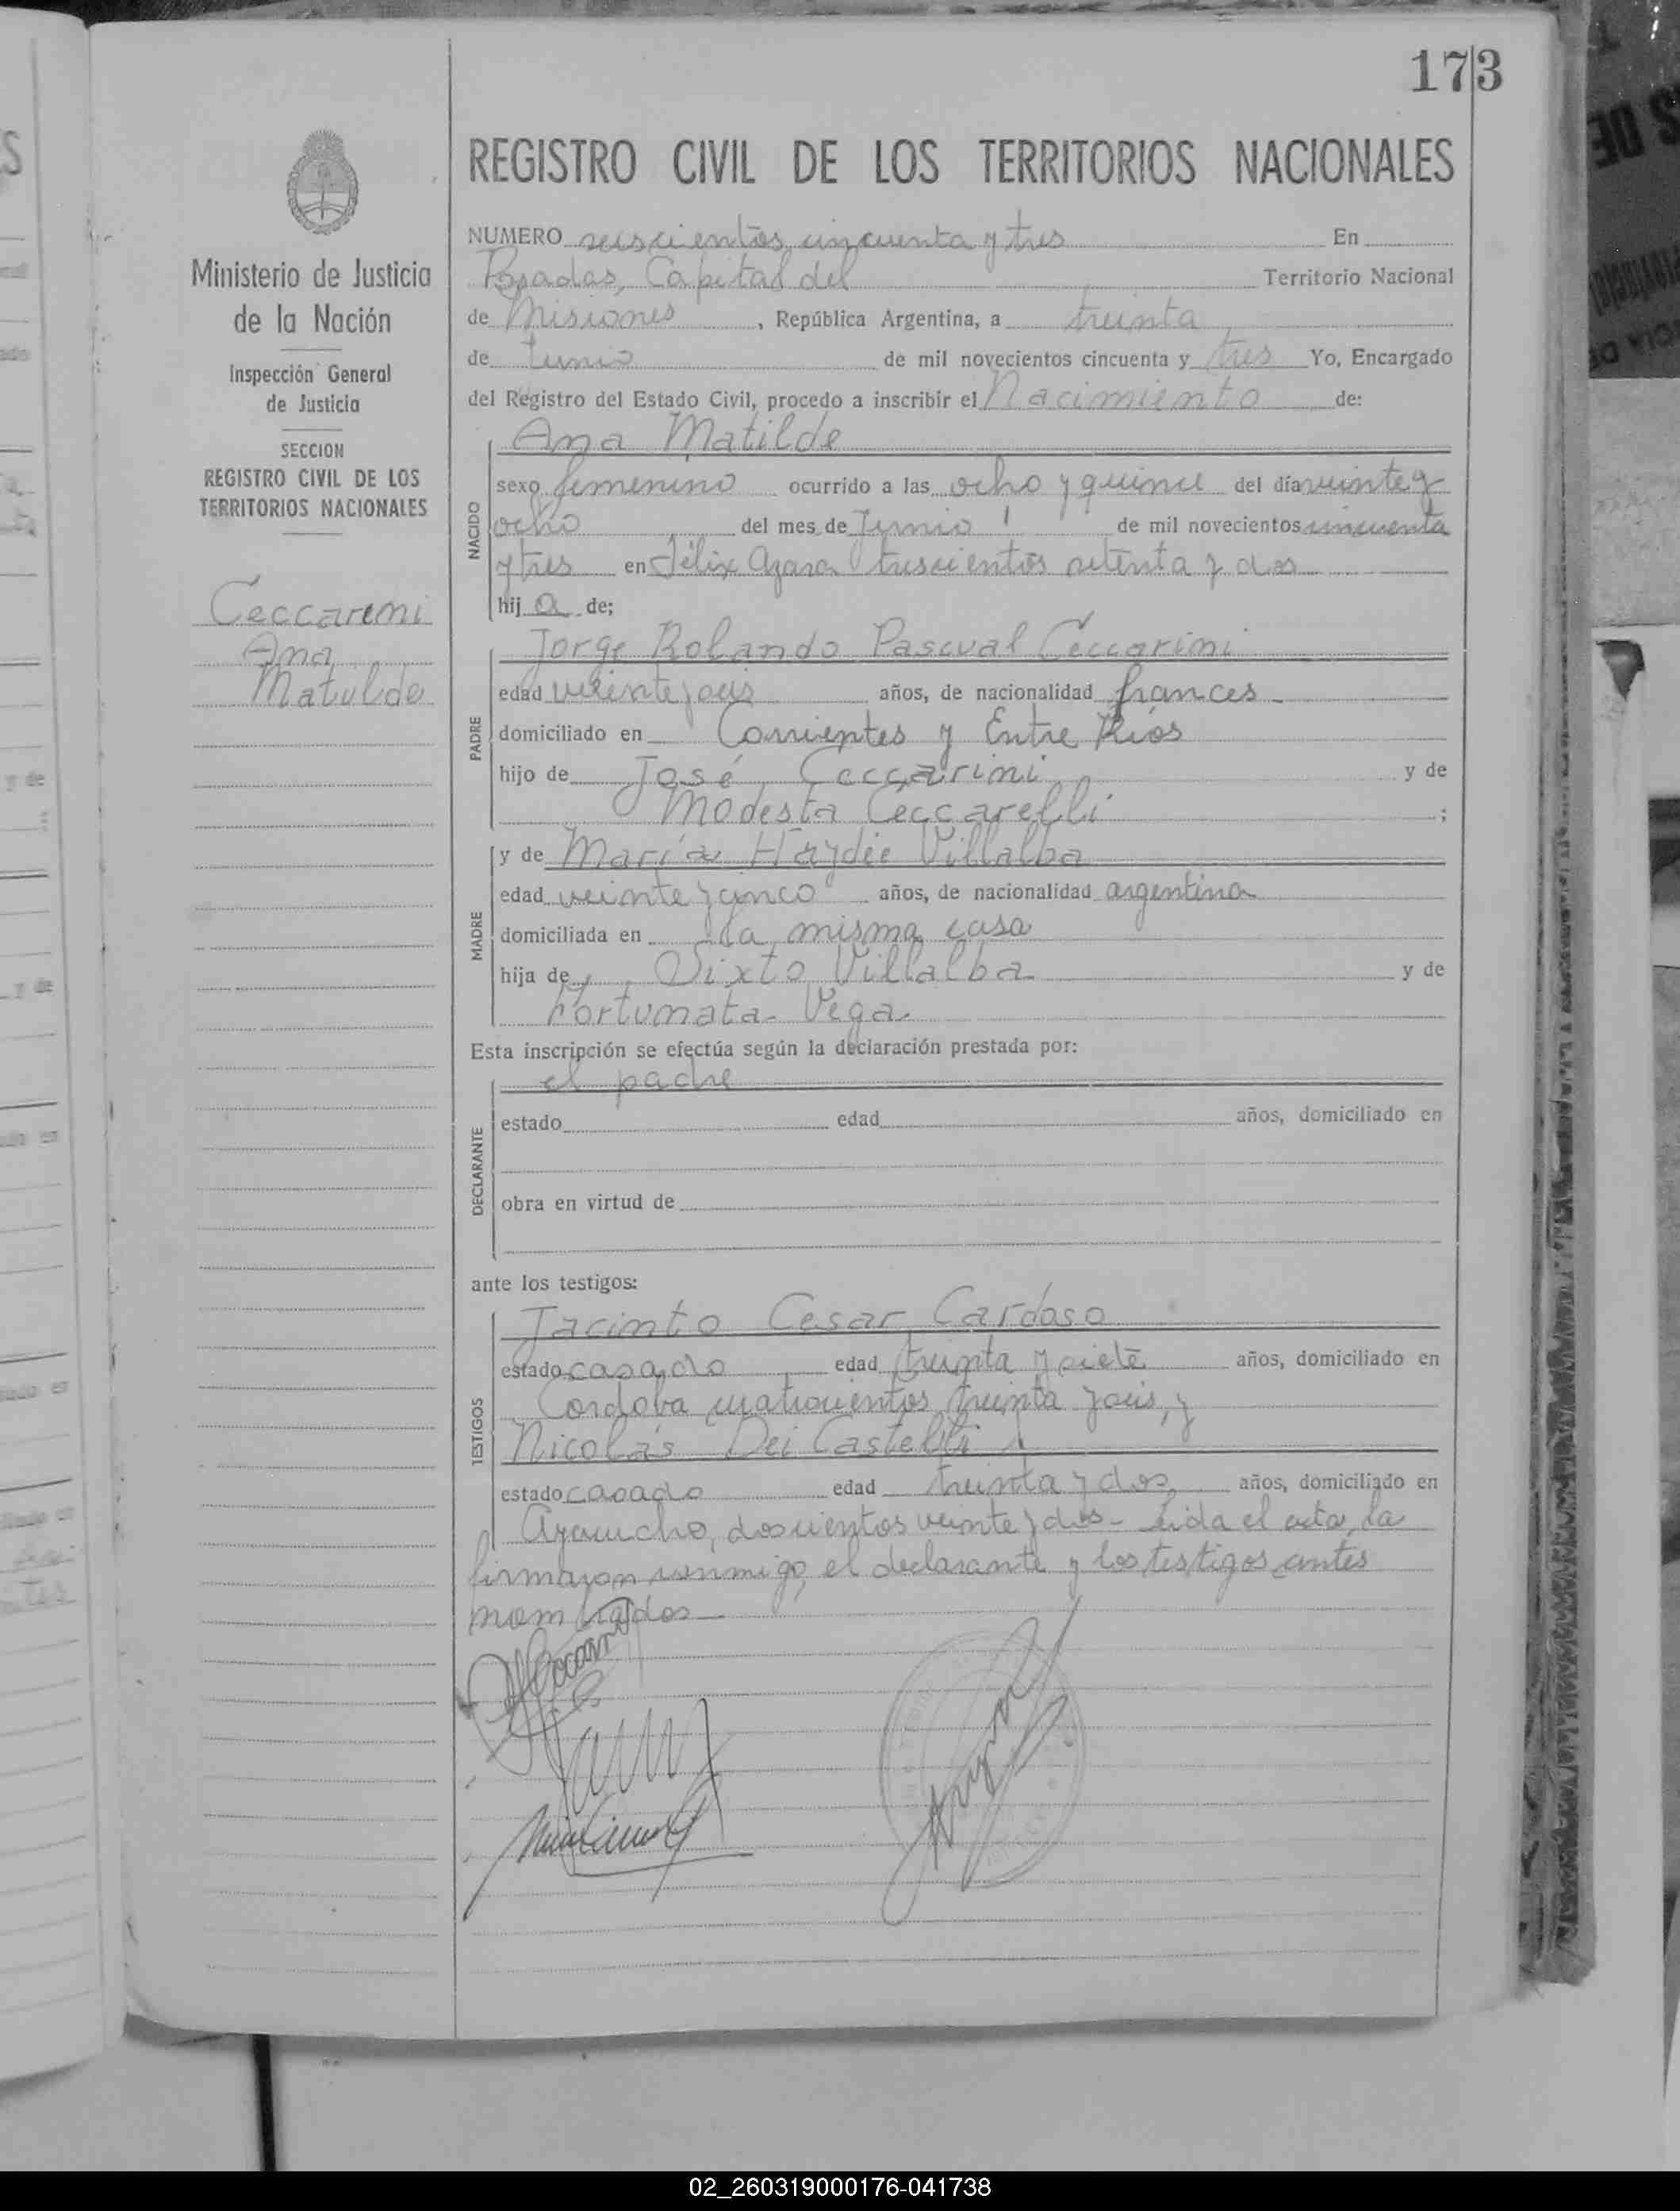 173
REGISTRO CIVIL DE LOS TERRITORIOS NACIONALES
Ministerio de Justicia
de la Nación
Inspección General
de Justicia
SECCION
REGISTRO CIVIL DE LOS
TERRITORIOS NACIONALES
Ceccarini
Ana
Matilde
NUMERO seiscientos cincuenta y tres En
Posadas, Capital del Territorio Nacional
de Misiones, República Argentina, a treinta
de Junio de mil novecientos cincuenta y tres Yo, Encargado
del Registro del Estado Civil, procedo a inscribir el Nacimiento de:
Ana Matilde
NACIDO
sexo femenino ocurrido a las ocho y quince del día veinte y
ocho del mes de Junio de mil novecientos cincuenta
y tres en Félix Azara trescientos setenta y dos
hij a de;
Jorge Rolando Pascual Ceccarini
PADRE
edad veinte y seis años, de nacionalidad frances
domiciliado en Corrientes y Entre Ríos
hijo de José Ceccarini y de
Modesta Ceccarelli ;
y de María Haydée Villalba
MADRE
edad veinte y cinco años, de nacionalidad argentina
domiciliada en la misma casa
hija de Sixto Villalba y de
Fortunata Vega
Esta inscripción se efectúa según la declaración prestada por:
el padre
DECLARANTE
estado edad años, domiciliado en
obra en virtud de
ante los testigos:
Jacinto Cesar Cardoso
TESTIGOS
estado casado edad treinta y siete años, domiciliado en
Cordoba cuatrocientos treinta y seis, y
Nicolás Dei Castelli
estado casado edad treinta y dos años, domiciliado en
Ayacucho, doscientos veinte y dos - Leida el acta, la
firmaron conmigo, el declarante y los testigos antes
nombrados
02_260319000176-041738